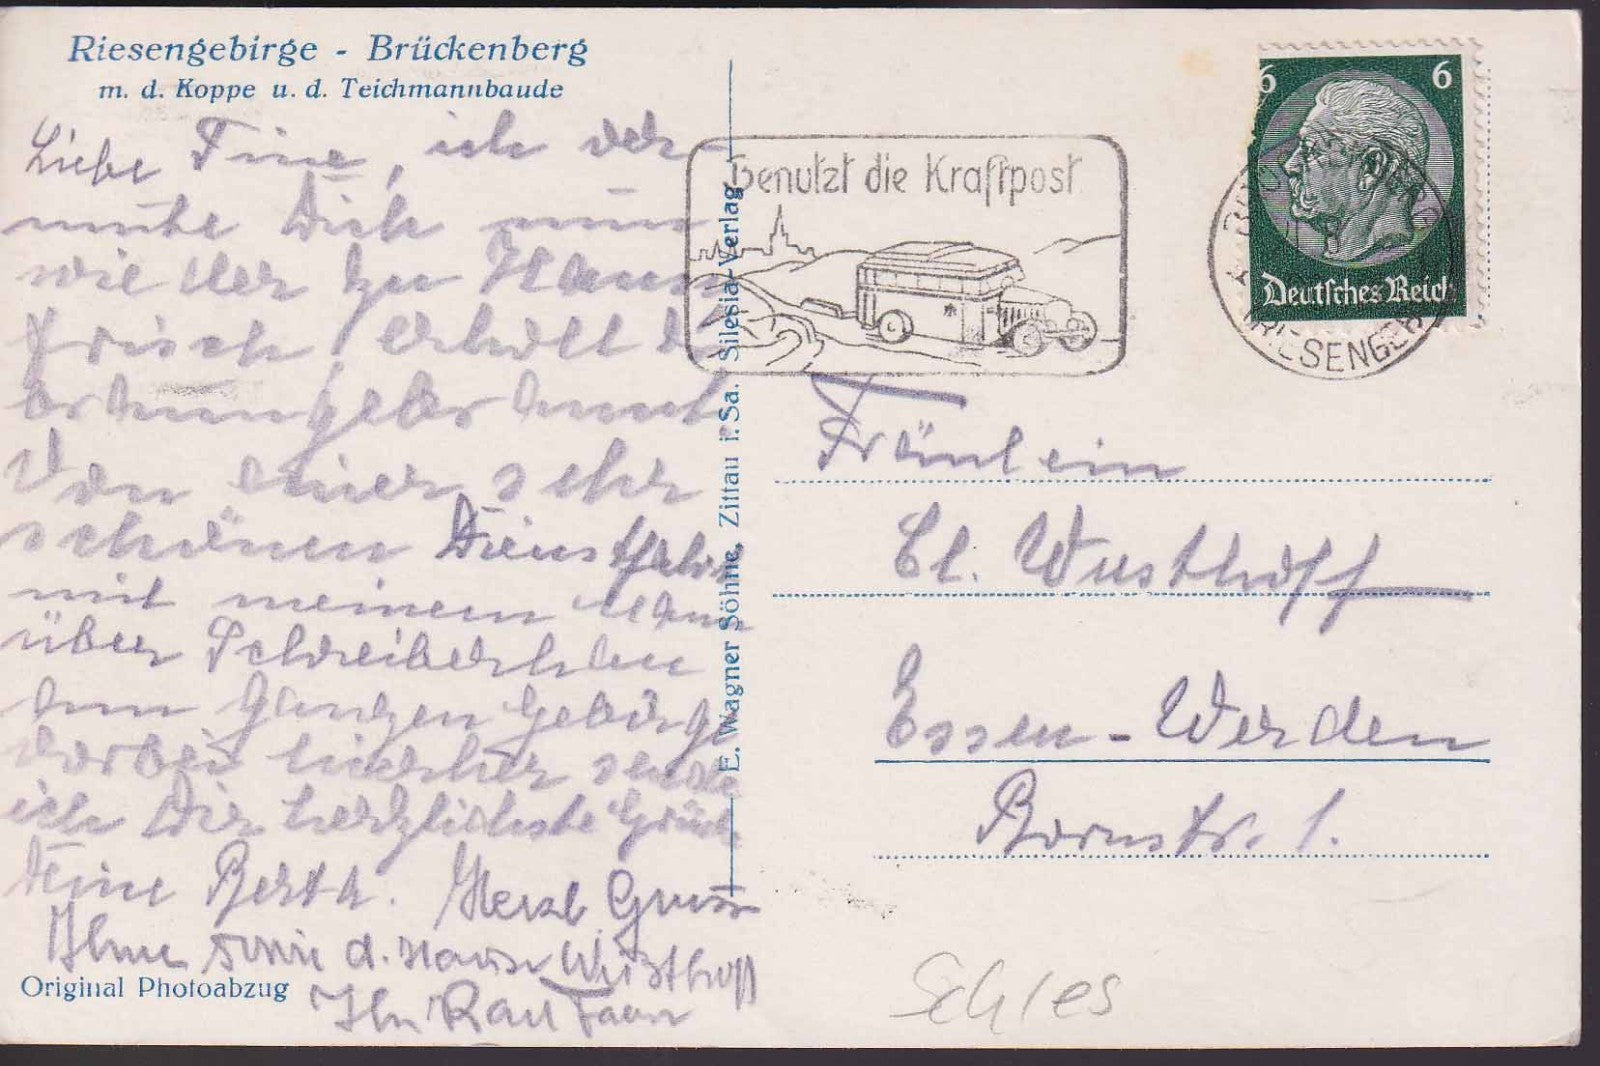 Riesengebirge - Brückenberg
m. d. Koppe u. d. Teichmannbaude
Liebe Tine, ich ver-
mute Dich nun
wieder zu Haus
frisch, erholt u
braungebrannt.
Von einer sehr
schönen Dienstfahrt
mit meinem Mann
über Schreiberhau
am ganzen Gebirge
vorbei hierher sende
ich Dir herzlichste Grüße
Deine Berta. Herzl Gruss
Ihnen sowie d. Hause Wüsthoff
Ihr Karl
Original Photoabzug
E. Wagner Söhne, Zittau i. Sa. Silesia-Verlag
Benutzt die Kraftpost
6 6
Deutsches Reich
RIESENGEB
Fräulein
El. Wusthoff
Essen-Werden
Bornstr. 1.
Schles